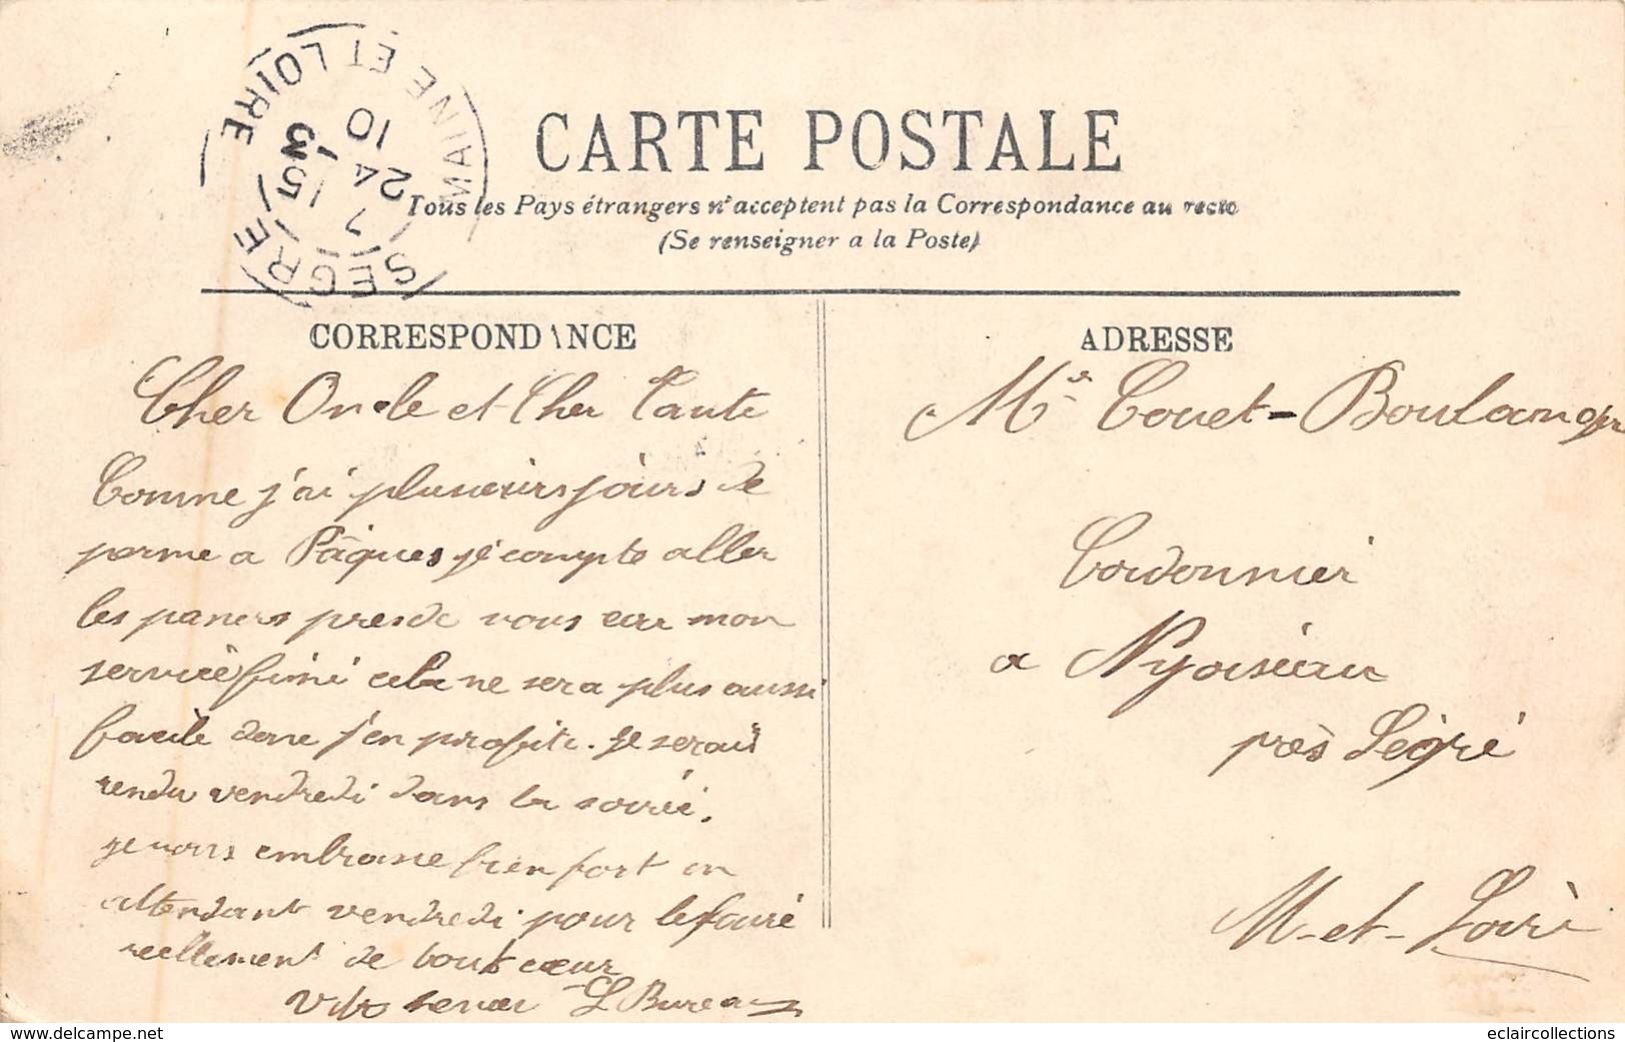 MAINE ET LOIRE
SEGRÉ
15 3
24
10
CARTE POSTALE
Tous les Pays étrangers n'acceptent pas la Correspondance au recto
(Se renseigner a la Poste)
CORRESPONDANCE
ADRESSE
Cher Oncle et Cher Tante
Comme j'ai plusieurs jours de
perme a Pâques je compte aller
les passer pres de vous car mon
service fini cela ne sera plus aussi
facile donc j'en profite. Je serais
rendu vendredi dans la soirée.
je vous embrasse bien fort en
attendant vendredi pour le faire
reellement de tout cœur
Votre neveu L Bureau
Mr Couet-Boulanger
Cordonnier
a Nyoiseau
près Ségré
M-et-Loire
eclaircollections
www.delcampe.net